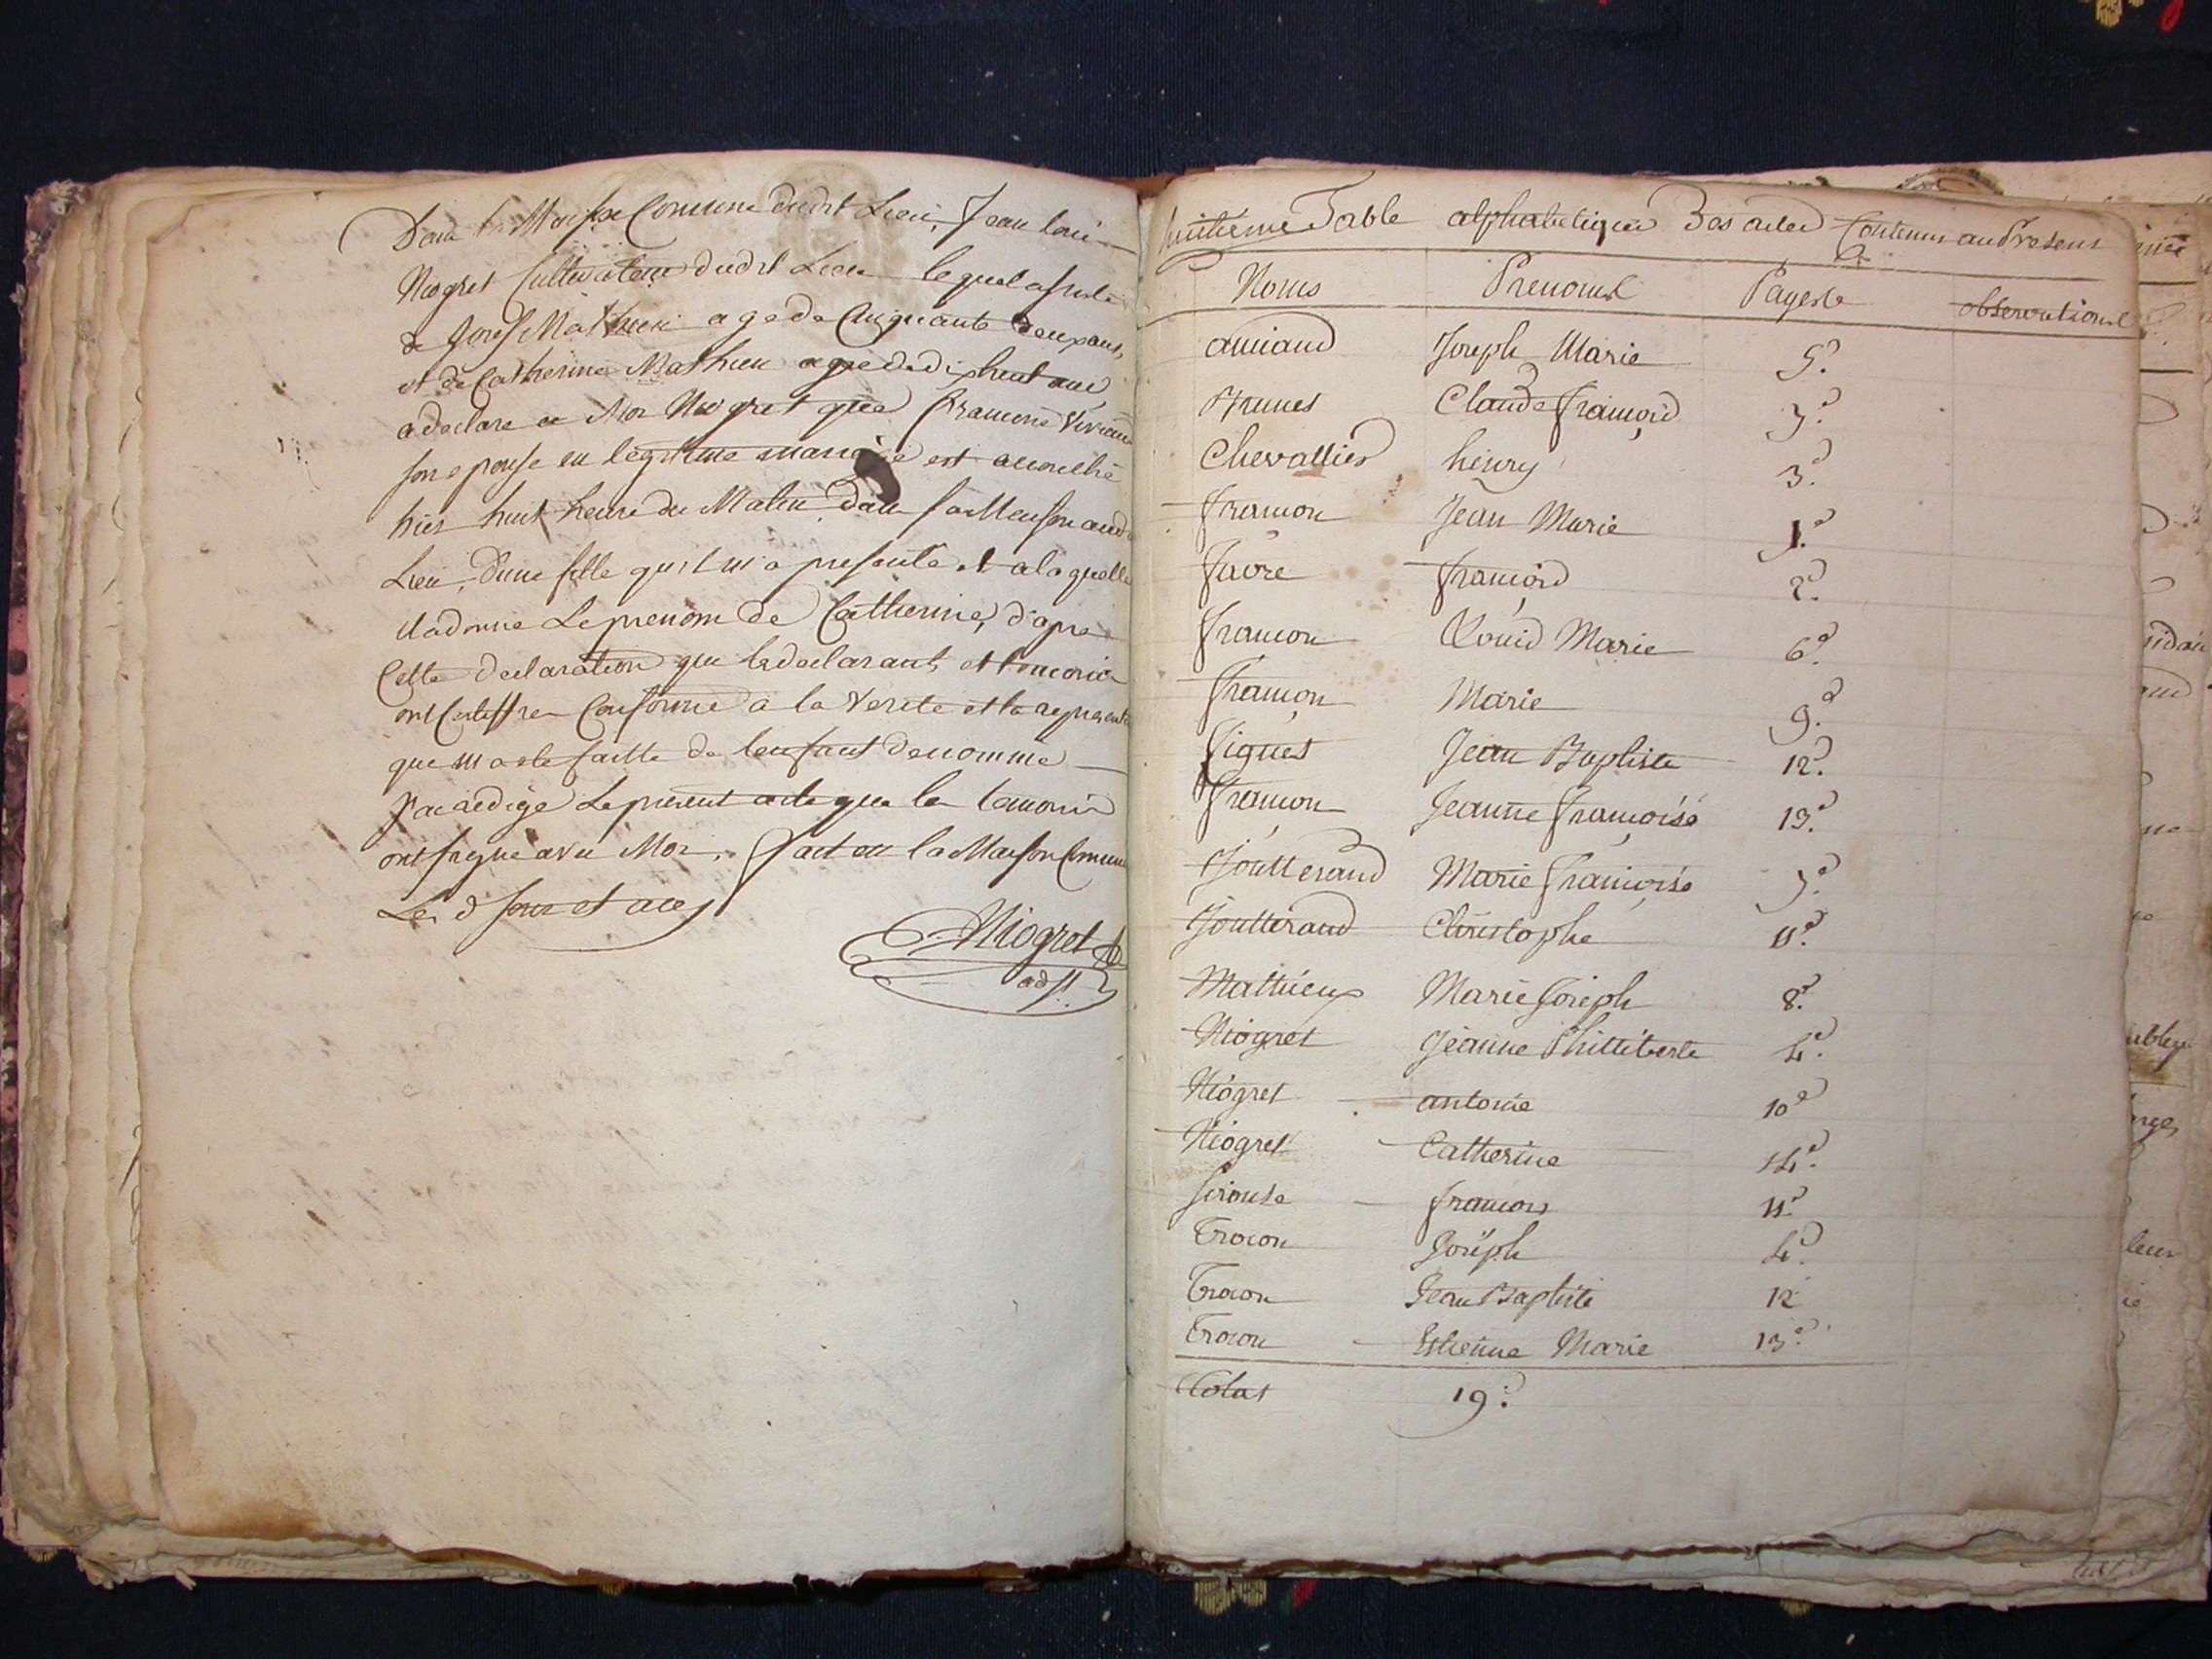 Dans la Maison Comune dudit Lieu, Jean loui
Niogret Cultivateur dudit Lieu lequel assisté
de Joseph Mathieu age de Cinquante deux ans,
et de Catherine Mathieu agée de dixhuit ans
a declare a Moi Niogret que francoise
son epouse en légitime mariage est acouchée
hier huit heure du Matin dans sa Maison aud
Lieu, d'une fille qu'il m'a presenté et a laquelle
il a donné Le prenom de Catherine, d'apres
Cette declaration que le declarant, et temoins
ont Certiffier Conforme a la Verité et la
que m'a ete faitte de lenfant denommé
J'ai redigé Le present acte que les temoins
ont signé avec Moi. fait en la Maison Comune
Les d jour et an
Niogret
Table alphabetique Des actes Contenus au Present
Noms Prenoms Pages observations
amiand Joseph Marie 5.e
Brunet Claude françois 3.e
Chevallier henry 3.e
françon Jean Marie 1.e
favre françois 2.e
françon Louis Marie 6.e
françon Marie 9.e
figuet Jean Baptiste 12.e
françon Jeanne françoise 13.e
Joutterand Marie françoise 7.e
Joutterand Christophe 11.e
Mathieux Marie Joseph 8.e
Niogret Jeanne Philliberte 4.e
Niogret antoine 10.e
Niogret Catherine 14.e
francois 11.e
Trocon Joseph 4.e
Trocon Jean Baptiste 12
Trocon Estienne Marie 13.e
Total 19.